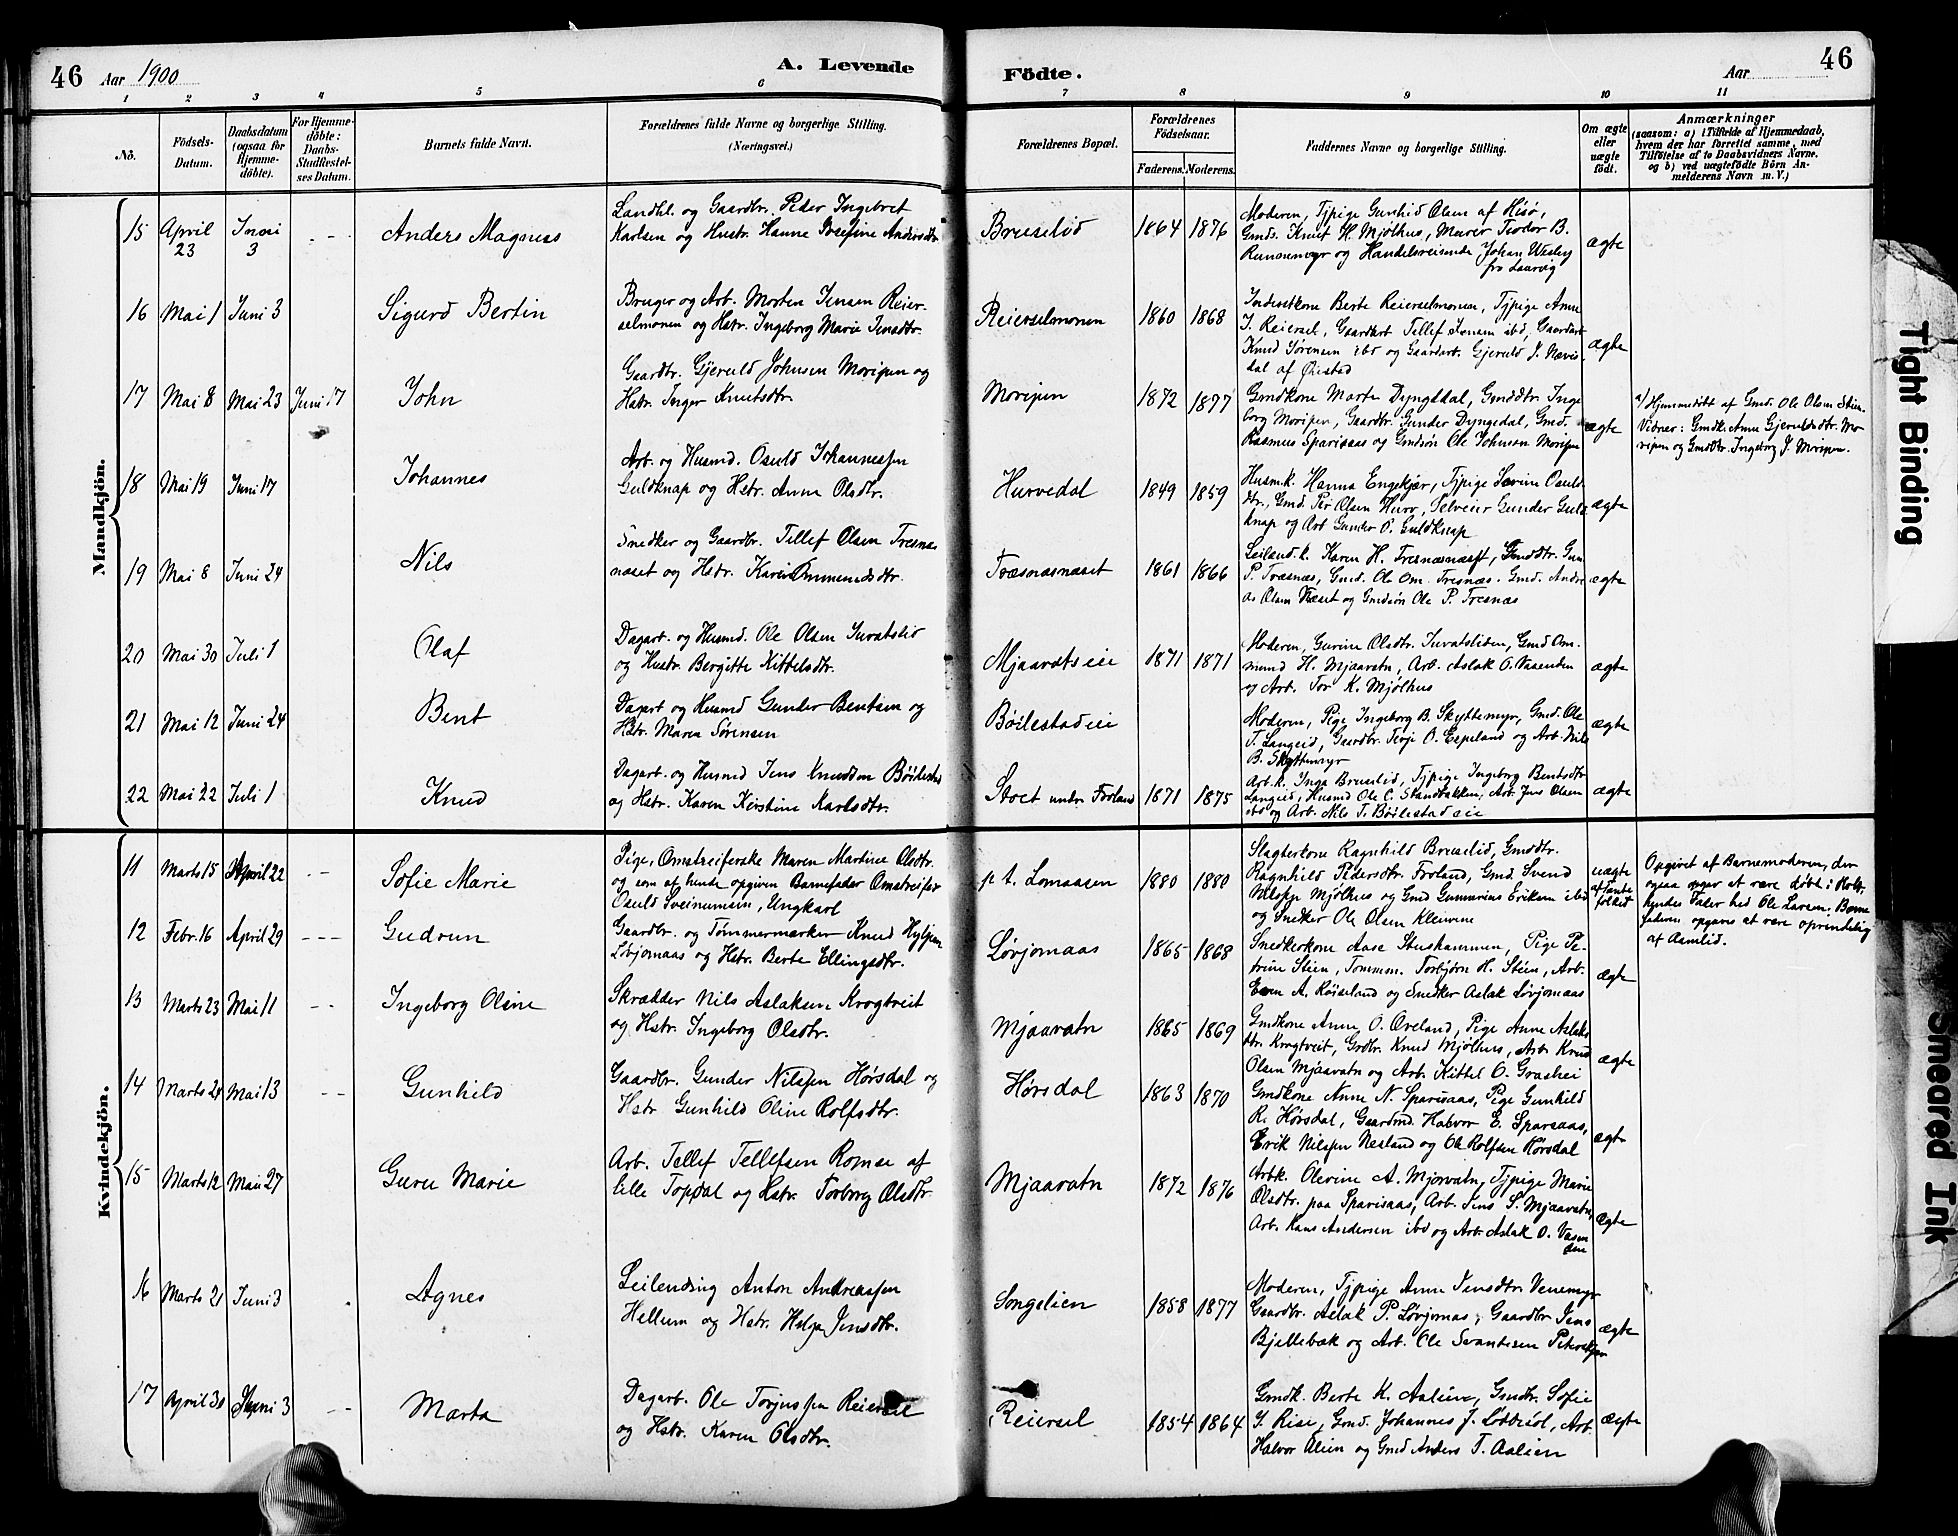 46 Aar 1900
A. Levende
Födte.
Aar
46
1 2 3 4 5 6 7 8 9 10 11
No.
Födsels-
Datum.
Daabsdatum
(ogsaa for
Hjemme-
döbte).
For Hjemme-
döbte:
Daabs-
Stadfæstel-
ses Datum.
Barnets fulde Navn.
Forældrenes fulde Navne og borgerlige Stilling.
(Næringsvei.)
Forældrenes Bopæl.
Forældrenes
Födselsaar.
Faderens. Moderens.
Faddernes Navne og borgerlige Stilling.
Om ægte
eller
uægte
födt.
Anmærkninger
(saasom: a) i Tilfælde af Hjemmedaab,
hvem der har forrettet samme, med
Tilföielse af to Daabsvidners Navne,
og b) ved uægtefödte Börn An-
melderens Navn m. V.)
Mandkjön.
15 April 23 Juni 3 Anders Magnus
Landhl. og Gaardbr. Peder Ingebret
Karlsen og Hustr. Hanne Josefine Andersdtr
Bruselid 1864 1876
Moderen, Tjpige Gunhild Olsen af Hisø,
Gmd. Knut H. Mjølhus, Murer Teodor B.
Runnemyr og Handelsreisende Johan Wesley
fra Laurvig
ægte
16 Mai 1 Juni 3 Sigurd Bertin
Bruger og Arb. Morten Jensen Reier-
selmonen og Hstr. Ingeborg Marie Jensdtr.
Reierselmonen 1860 1868
Inderstkone Berte Reierselmonen, Tjpige Anne
J. Reiersel, Gaardbrt Tellef Jensen ibd, Gaardart
Knud Sørensen ibd og Gaardart. Gjeruld J. Nævis
dal af Øiestad
ægte
17 Mai 8 Mai 23 Juni 17 John
Gaardbr. Gjeruld Johnsen Moripen og
Hstr. Inger Knutsdtr.
Moripen 1872 1877
Gmdkone Marte Dyngedal, Gmddtr. Inge
borg Moripen, Gaardbr. Gunder Dyngedal, Gmd.
Rasmus Sparsaas og Gmdsøn Ole Johnsen Moripen
ægte
a) Hjemmedøbt af Gmd. Ole Olsen Stien
Vidner: Gmdk. Anne Gjeruldsdtr. Mo-
ripen og Gmddtr. Ingeborg J. Moripen.
18 Mai 19 Juni 17 Johannes
Arb. og Husmd. Osuld Johannessen
Guldknap og Hstr. Anne Olsdtr.
Hurvedal 1849 1859
Husm.k. Hanna Engekjær, Tjpige Severine Osuld
dtr., Gmd. Per Olsen Hurv, Selveier Gunder Guld
knap og Arb Gunder O. Guldknap
ægte
19 Mai 8 Juni 24 Nils
Snedker og Gaardbr. Tellef Olsen Tresnes
næset og Hstr. Karen Ommundsdtr.
Træsnæsnæset 1861 1866
Leiland.k. Karen H. Tresnæsnæset, Gmddtr. Gun
P. Træsnæs, Gmd. Ole Om. Tresnæs. Gmd. Andre
as Olsen Næset og Gmdsøn Ole P. Tresnæs
ægte
20 Mai 30 Juli 1 Olaf
Dagarb. og Husmd. Ole Olsen Juvatslid
og Hustr. Bergitte Kittelsdtr.
Mjaavatseie 1871 1871
Moderen, Gurine Olsdtr. Juvatsliden, Gmd Om-
mund H. Mjaavatn, Arb. Aslak O. Vaaenden
og Arb. Tor K. Mjølhus
ægte
21 Mai 12 Juni 24 Bent
Dagart og Husmd Gunder Bentsen og
Hstr. Maren Sørensen
Bøilestadeie
Moderen, Pige Ingeborg B. Skyttemyr, Gmd. Ole
T. Langeid, Gaardbr. Terje O. Espeland og Arb. Nils
B. Skyttemyr
ægte
22 Mai 22 Juli 1 Knud
Dagarb. og Husmd Jens Knudsen Bøilestad
og Hstr. Karen Kirstine Karlsdtr.
Stoet under Forland 1871 1875
Arb.k. Inga Bruselid, Tjpige Ingeborg Bentsdtr
Langeid, Husmd Ole C. Standbakken, Arb. Jens Olsen
ibd og Arb. Nils T. Bøilestadeie
ægte
Kvindekjön.
11 Marts 15 April 22 Sofie Marie
Pige, Omstreiferske Maren Martine Olsdtr.
og som af hende opgiven Barnefader Omstreifer
Osuld Sveinumsen, Ungkarl
p t. Lomaasen 1880 1880
Slagterkone Ragnhild Bruselid, Gmddtr.
Ragnhild Pedersdtr. Forland, Gmd. Svend
Nilsen Mjølhus og Gmd Gunnarius Eriksen ibd
og Snedker Ole Olsen Kleivene
uægte
af Tante
folket
Opgivet af Barnemoderen, der
ogsaa siger at være døbt i Holt
Kyndes Taler hed Ole Larsen. Barne
faderen opgives at være oprindelig
af Aamlid.
12 Febr. 16 April 29 Gudrun
Gaardbr. og Tømmermærker Knud Kylpen
Løvjomaas og Hstr. Berte Ellingsdtr.
Løvjomaas 1865 1868
Snedkerkone Aase Stushammen, Pige Pe-
trine Stien, Tommm. Torbjørn H. Stien, Arb.
Even A. Røiseland og Snedker Aslak Løvjomaas
ægte
13 Marts 23 Mai 11 Ingeborg Oline
Skrædder Nils Aslaksen Krogtveit
og Hstr. Ingeborg Olsdtr.
Mjaavatn 1865 1869
Gmdkone Anne O. Øveland, Pige Anne Aslaks
dtr. Krogtveit, Grdbr. Knud Mjølhus, Arb. Knud
Olsen Mjaavatn og Arb. Kittel O. Grashei
ægte
14 Marts 24 Mai 13 Gunhild
Gaardbr. Gunder Nilsen Hørsdal og
Hstr Gunhild Oline Rolfsdtr.
Hørsdal 1863 1870
Gmdkone Anne N. Sparsaas, Pige Gunhild
R. Hørsdal, Gaardmd. Halvor E. Sparsaas,
Erik Nilsen Nesland og Ole Rolfsen Hørsdal
ægte
15 Marts 12 Mai 27 Guru Marie
Arb. Tellef Tellefsen Romse af
lille Topdal og Hstr. Torborg Olsdtr.
Mjaavatn 1872 1876
Arbk. Olevine A. Mjovatn, Tjpige Marie
Olsdtr. paa Sparsaas, Arb. Jens S. Mjaavatn,
Arb. Hans Andersen ibd og Arb. Aslak O. Vaaen
den
ægte
16 Marts 21 Juni 3 Agnes
Leilending Anton Andreassen
Hellum og Hstr. Helga Jensdtr.
Songelien 1858 1877
Moderen, Tjpige Anne Jensdtr. Venemyr
Gaardbr. Aslak P. Løvjomas, Gaardbr Jens
Bjellebæk og Arb. Ole Svantesen Peterskjær
ægte
17 April 30 Juni 3 Marta
Dagarb. Ole Torjussen Reiersel
og Hstr. Karen Olsdtr.
Reiersel 1854 1864
Gmdk. Berte K. Aalien, Gmdtr. Sofie
J. Rise, Gmd. Johannes J. Løddesøl, Arb.
Halvor Alien og Gmd Anders T. Aalien
ægte
Tight Binding
Smeared Ink